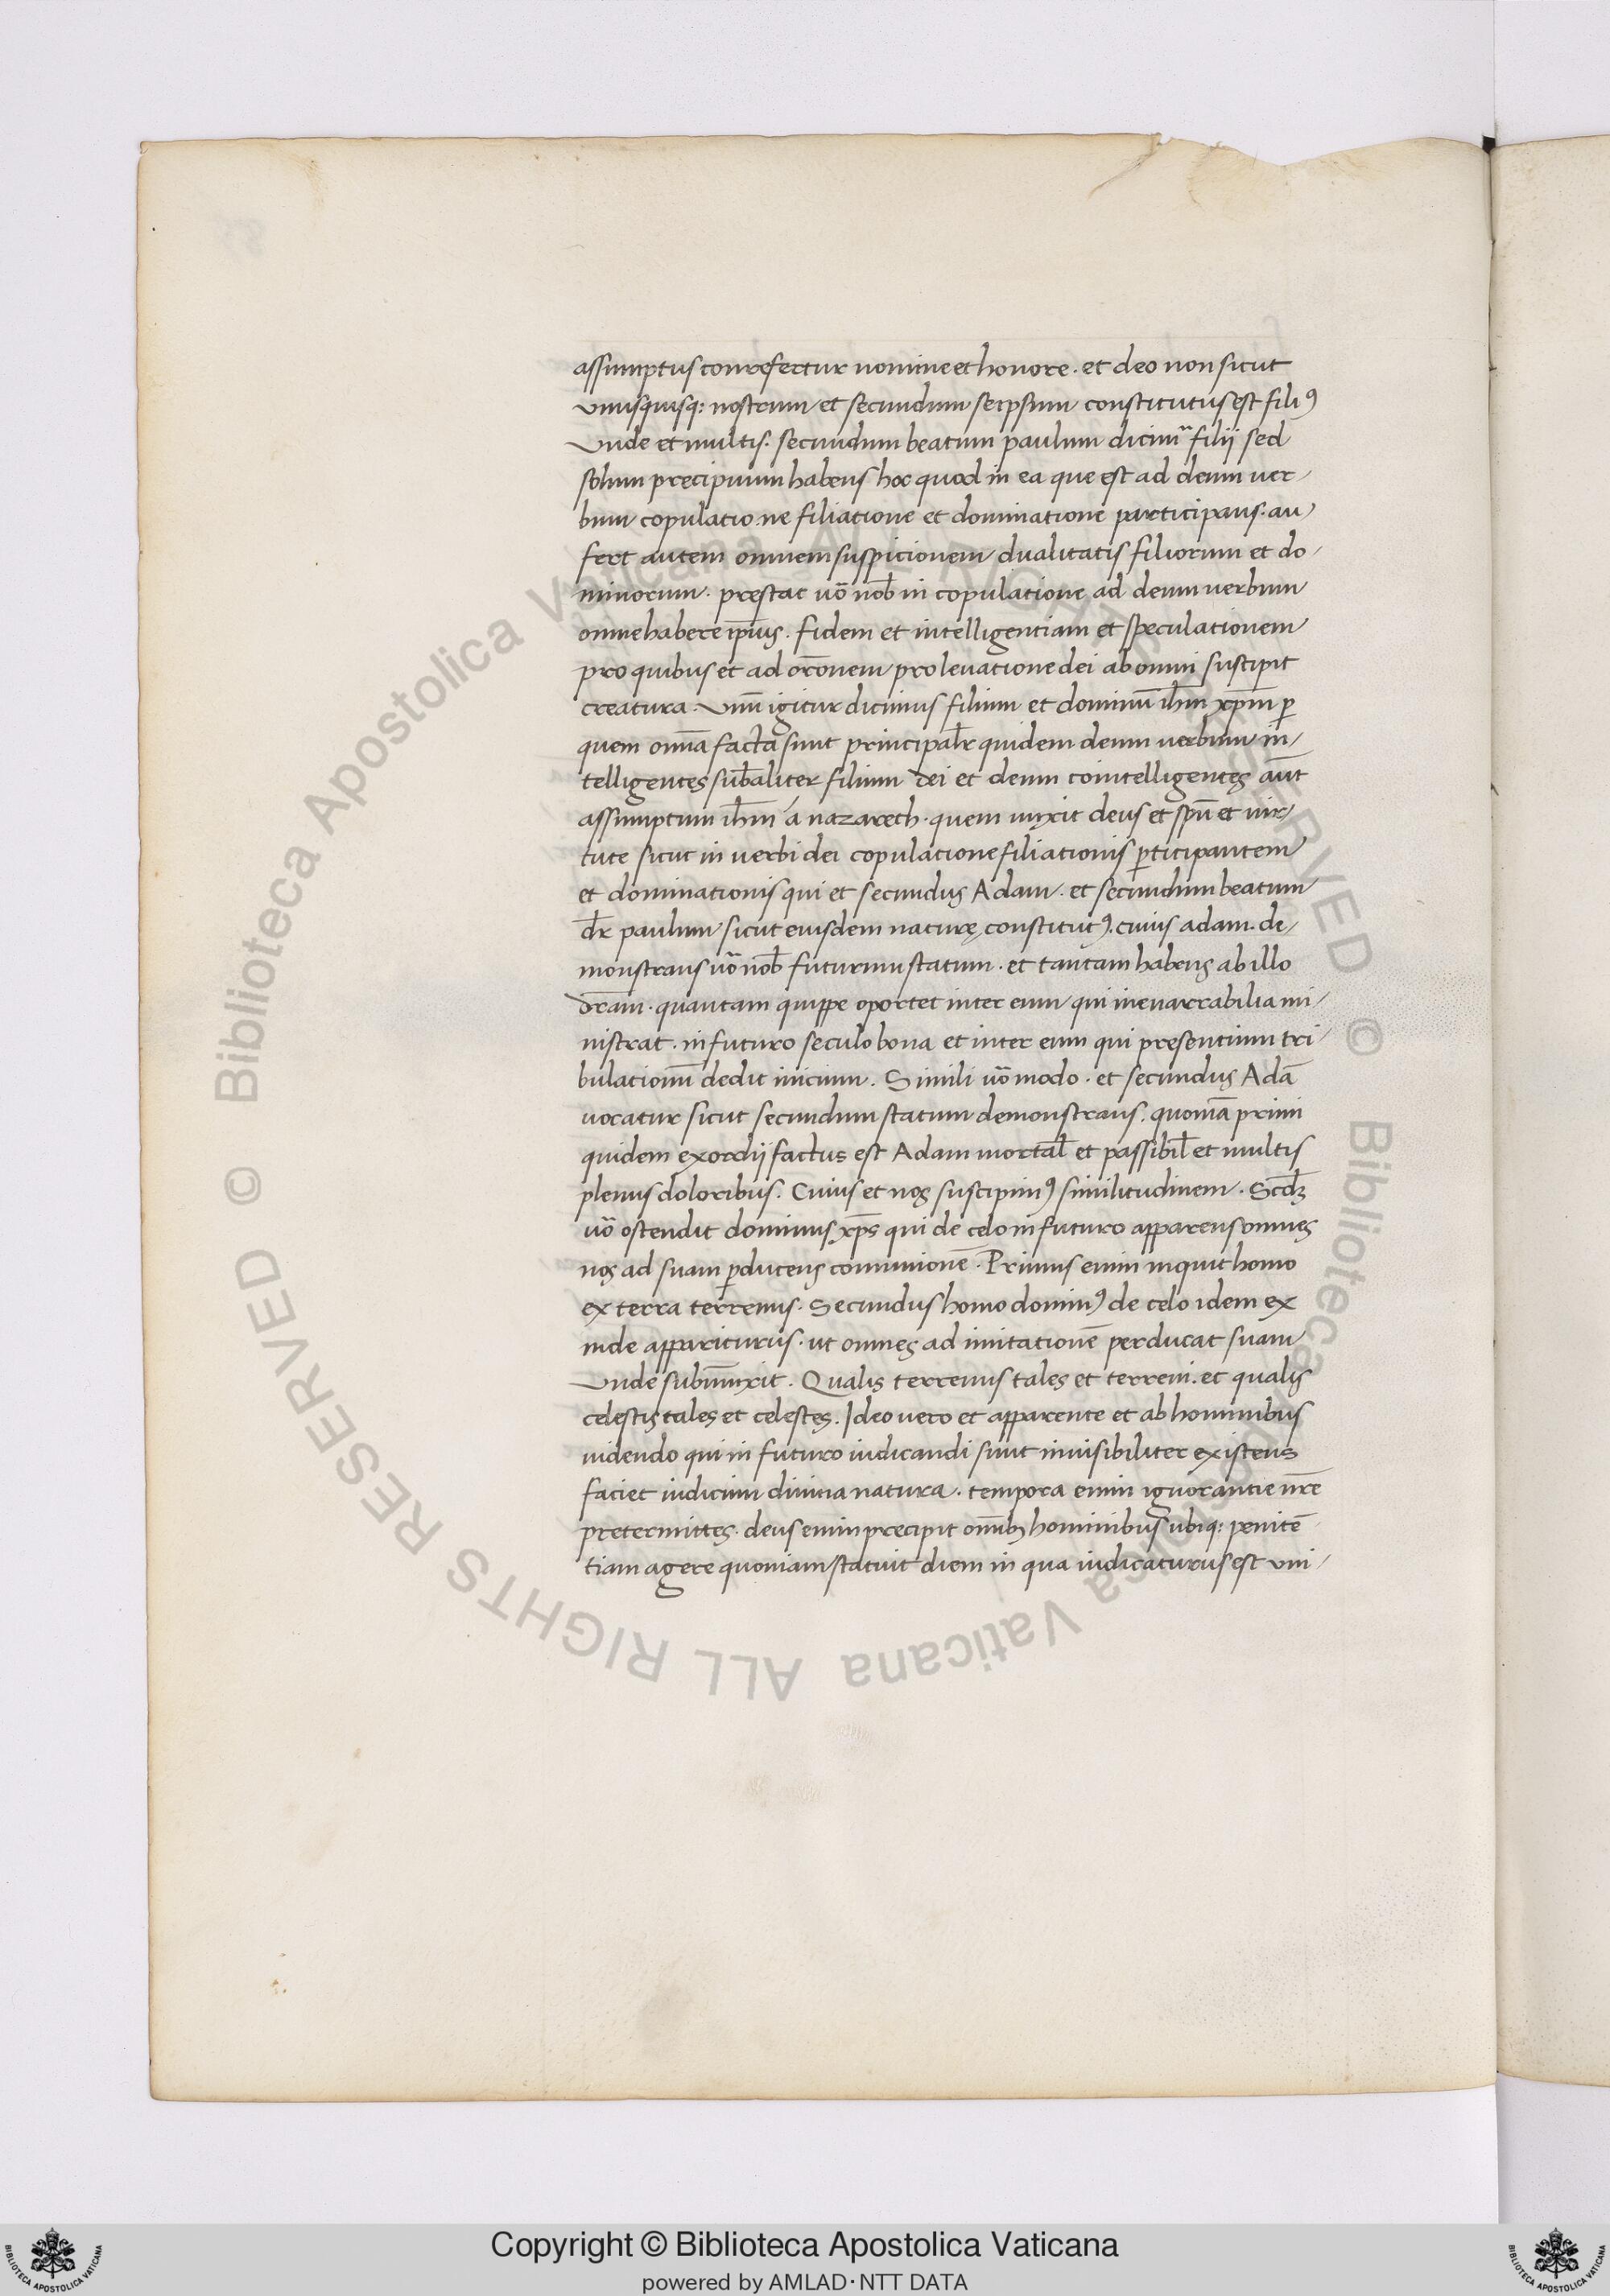 assumptus conrefertur nomine et honore. et deo non sicut
vnusquisq: nostrum et secundum seipsum constitutus est filiꝰ
Vnde et multis. secundum beatum paulum dicimͣ filij sed
solum precipuum habens hoc quod in ea que est ad deum uer-
bum copulatio.ne filiatione et dominatione participans. au-
fert autem omnem suspicionem dualitatis filiorum et do-
minorum. prestat uō nob̄ in copulatione ad deum uerbum
omne habere ip̄ius. fidem et intelligentiam et speculationem
pro quibus et ad orōnem pro leuatione dei ab omni suscipit
creatura. Vnū igitur dicimus filium et dominū ih̄m xp̄m p̄
quem omīa facta sunt principal̄r quidem deum uerbum in-
telligentes sub̄aliter filium dei et deum cointelligentes aūt
assumptum ih̄m á nazareth. quem unxit deus et spū et uir-
tute sicut in uerbi dei copulatione filiationis p̄ticipantem
et dominationis qui et secundus Adam. et secundum beatum
dr̄ paulum sicut eiusdem naturę constitutꝰ. cuius adam. de-
monstrans uō nob̄ futurum statum. et tantam habens ab illo
dr̄am. quantam quippe oportet inter eum qui inenarrabilia mi-
nistrat. in futuro seculo bona et inter eum qui presentium tri-
bulationū dedit inicium. Simili uō modo. et secundus Adā
uocatur sicut secundum statum demonstrans. quoniā primi
quidem exordij factus est Adam mortal̄ et passibil̄ et multis
plenus doloribus. Cuius et nos suscipimꝰ similitudinem. Scd̄ꝫ
uō ostendit dominus xp̄s qui de celo in futuro apparens omnes
nos ad suam p̄ducens comunionē. Primus enim inquit homo
ex terra terrenus. Secundus homo dominꝰ de celo idem ex
inde appariturus. ut omnes ad imitationē perducat suam
Vnde subiūnxit. Qualis terrenus tales et terreni. et qualis
celestis tales et celestes. Ideo uero et apparente et ab hominibus
uidendo qui in futuro iudicandi sunt inuisibiliter existens
faciet iudicium diuina natura. tempora enim ignorantie nr̄e
pretermittes. deus enim precipit omībꝫ hominibus ubiq: penitē
tiam agere quoniam statuit diem in qua iudicaturus est vni-
Copyright © Biblioteca Apostolica Vaticana
powered by AMLAD·NTT DATA